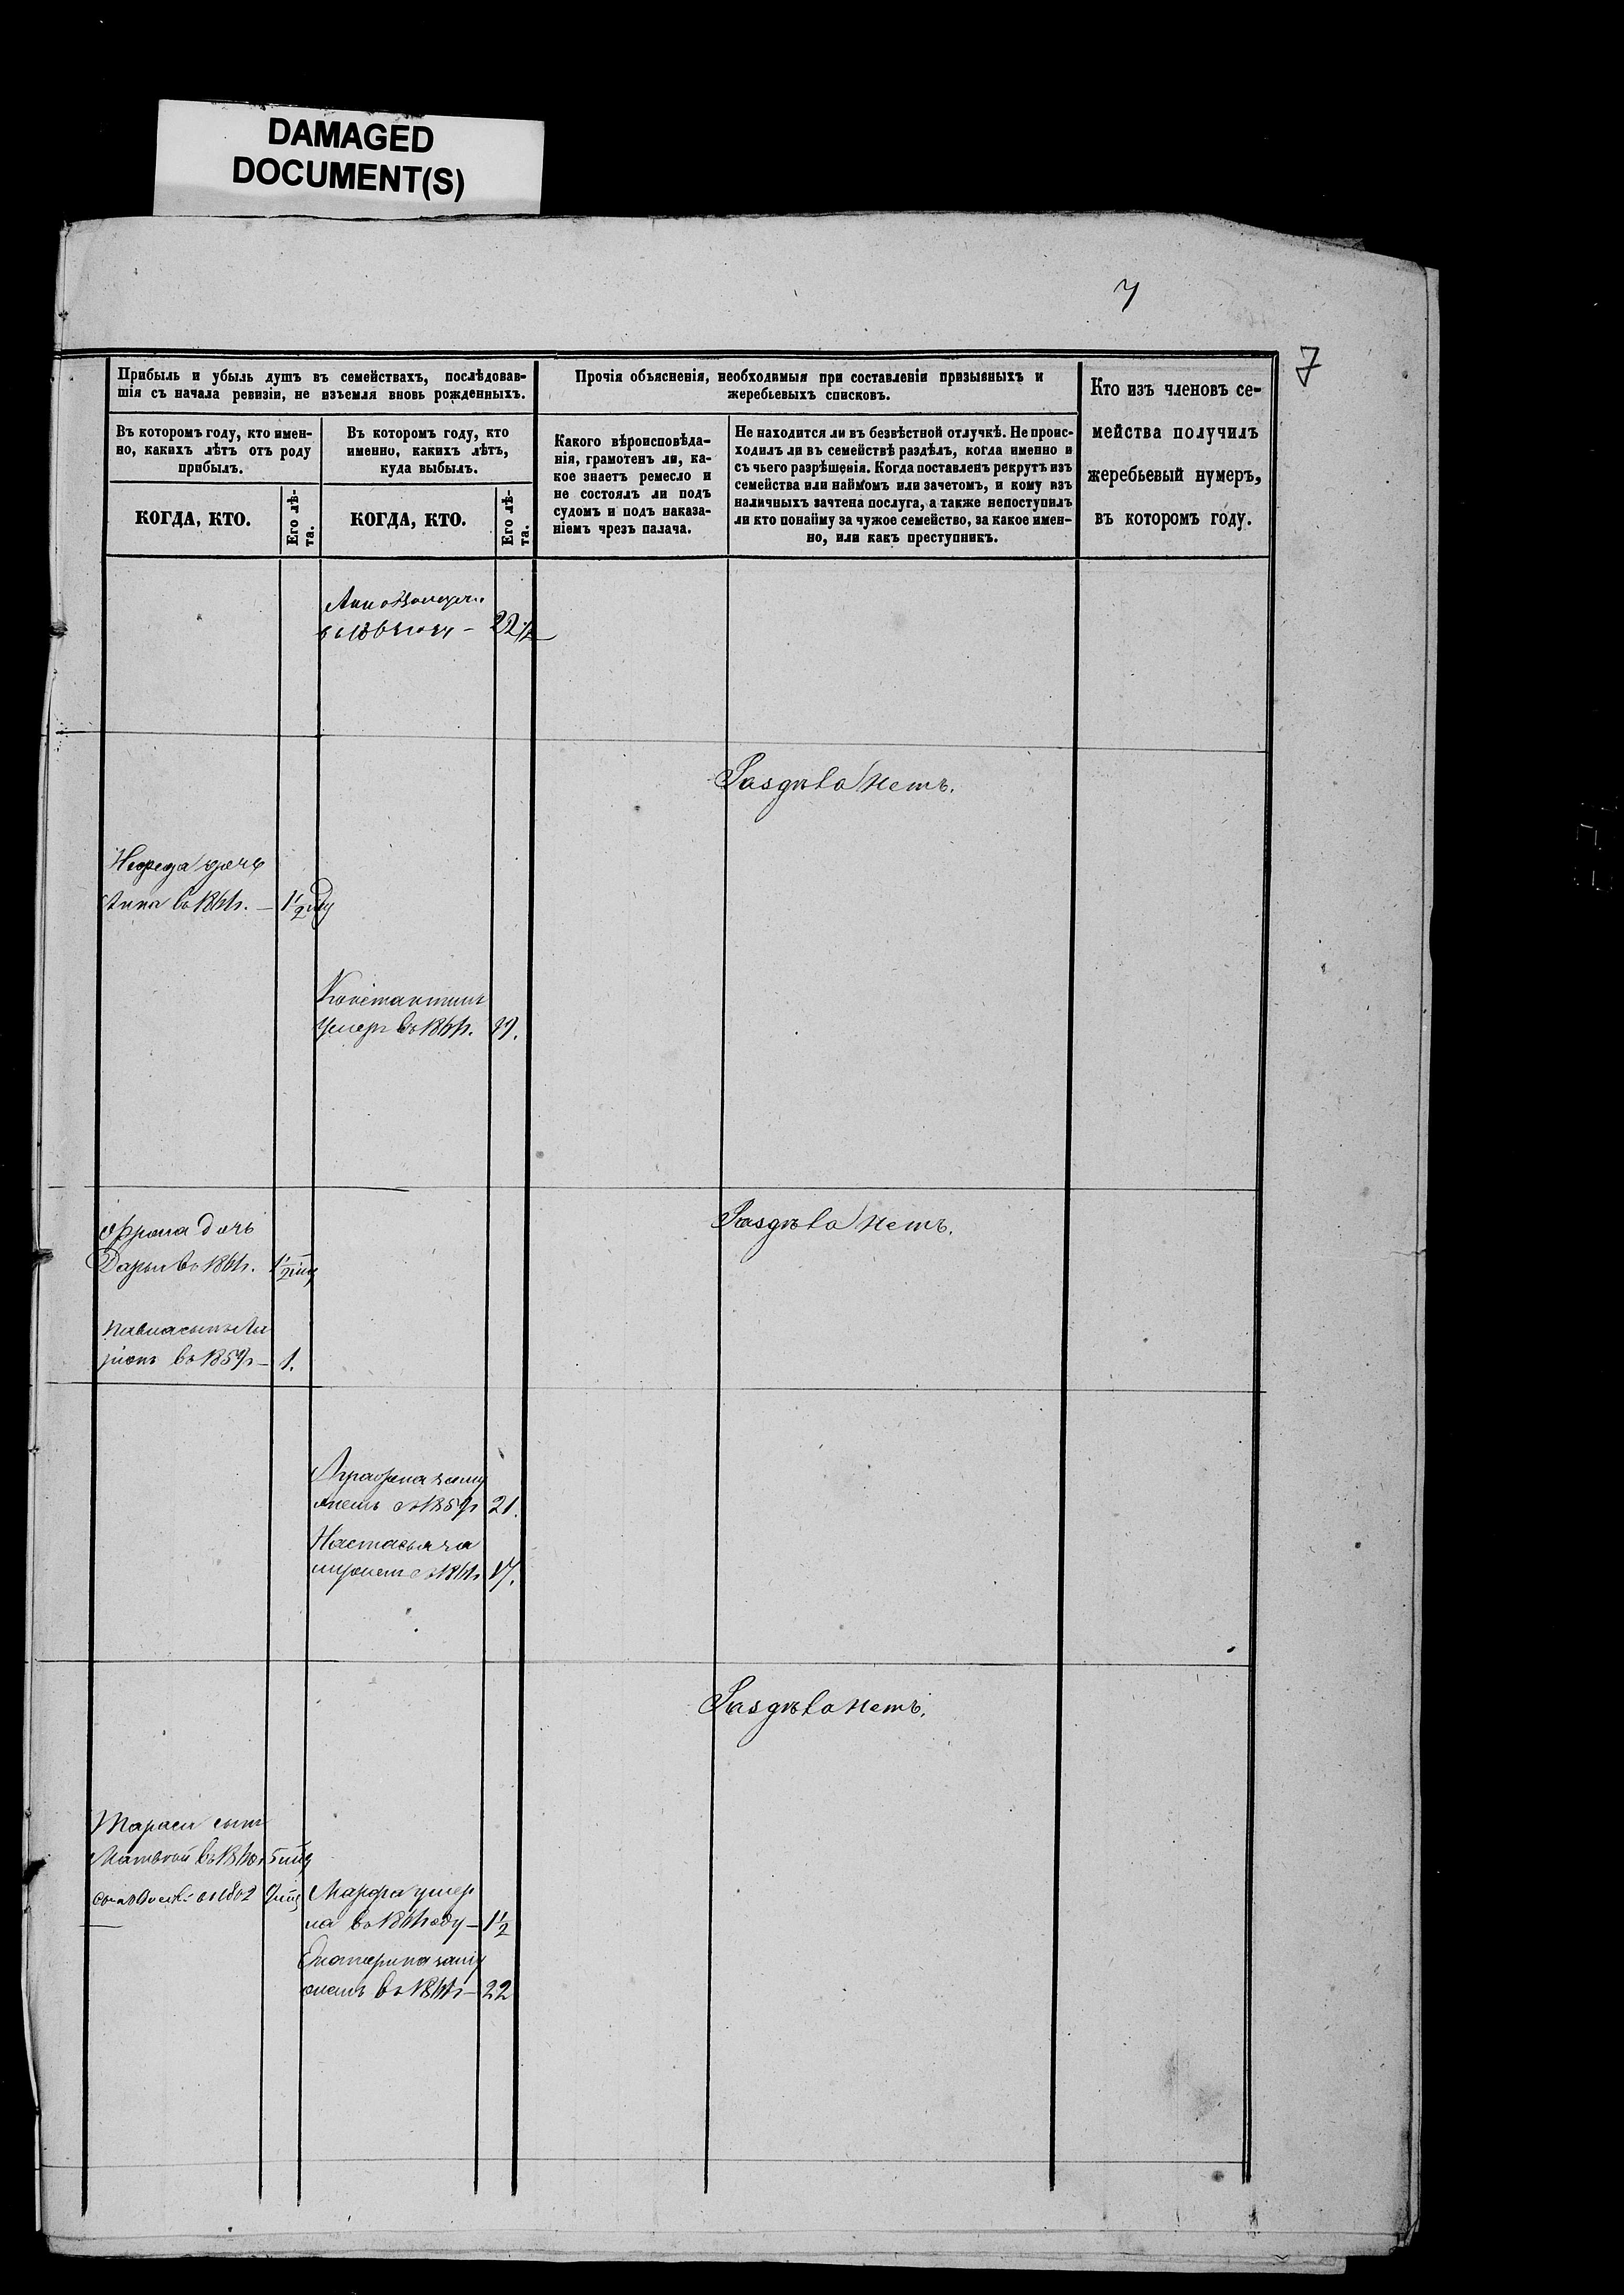 DAMAGED
DOCUMENT(S)
7
7
Прибыль и убыль душъ въ семействахъ, послѣдовав-
шія съ начала ревизіи, не изъемля вновь рожденныхъ.
Прочія объясненія, необходимыя при составленіи призывныхъ и
жеребьевыхъ списковъ.
Кто изъ членовъ се-
мейства получилъ
жеребьевый нумеръ,
въ которомъ году.
Въ которомъ году, кто имен-
но, какихъ лѣтъ отъ роду
прибылъ.
Въ которомъ году, кто
именно, какихъ лѣтъ,
куда выбылъ.
Какого вѣроисповѣда-
нія, грамотенъ ли, ка-
кое знаетъ ремесло и
не состоялъ ли подъ
судомъ и подъ наказа-
ніемъ чрезъ палача.
Не находится ли въ безвѣстной отлучкѣ. Не проис-
ходилъ ли въ семействѣ раздѣлъ, когда именно и
съ чьего разрѣшенія. Когда поставленъ рекрутъ изъ
семейства или наймомъ или зачетомъ, и кому изъ
наличныхъ зачтена послуга, а также непоступилъ
ли кто понайму за чужое семейство, за какое имен-
но, или какъ преступникъ.
КОГДА, КТО.
Его лѣ-
та.
КОГДА, КТО.
Его лѣ-
та.
22 1/2
Раздѣла нетъ.
дочь
Анна въ 1861г. — 1/2
Константинъ
умеръ въ 1861г.
Раздѣла нетъ.
дочь
Дарья въ 1861г. 1/2
Павла сынъ Ла
ріонъ въ 1859г — 1.
Аграфена заму
жемъ съ 1859г 21.
Настасья за
мужемъ съ 1861г 17.
Раздѣла нетъ.
Тараса сынъ
Матвей въ
Марфа умер
ла въ 1861 году — 1 1/2
Екатерина заму
жемъ въ 1861г — 22